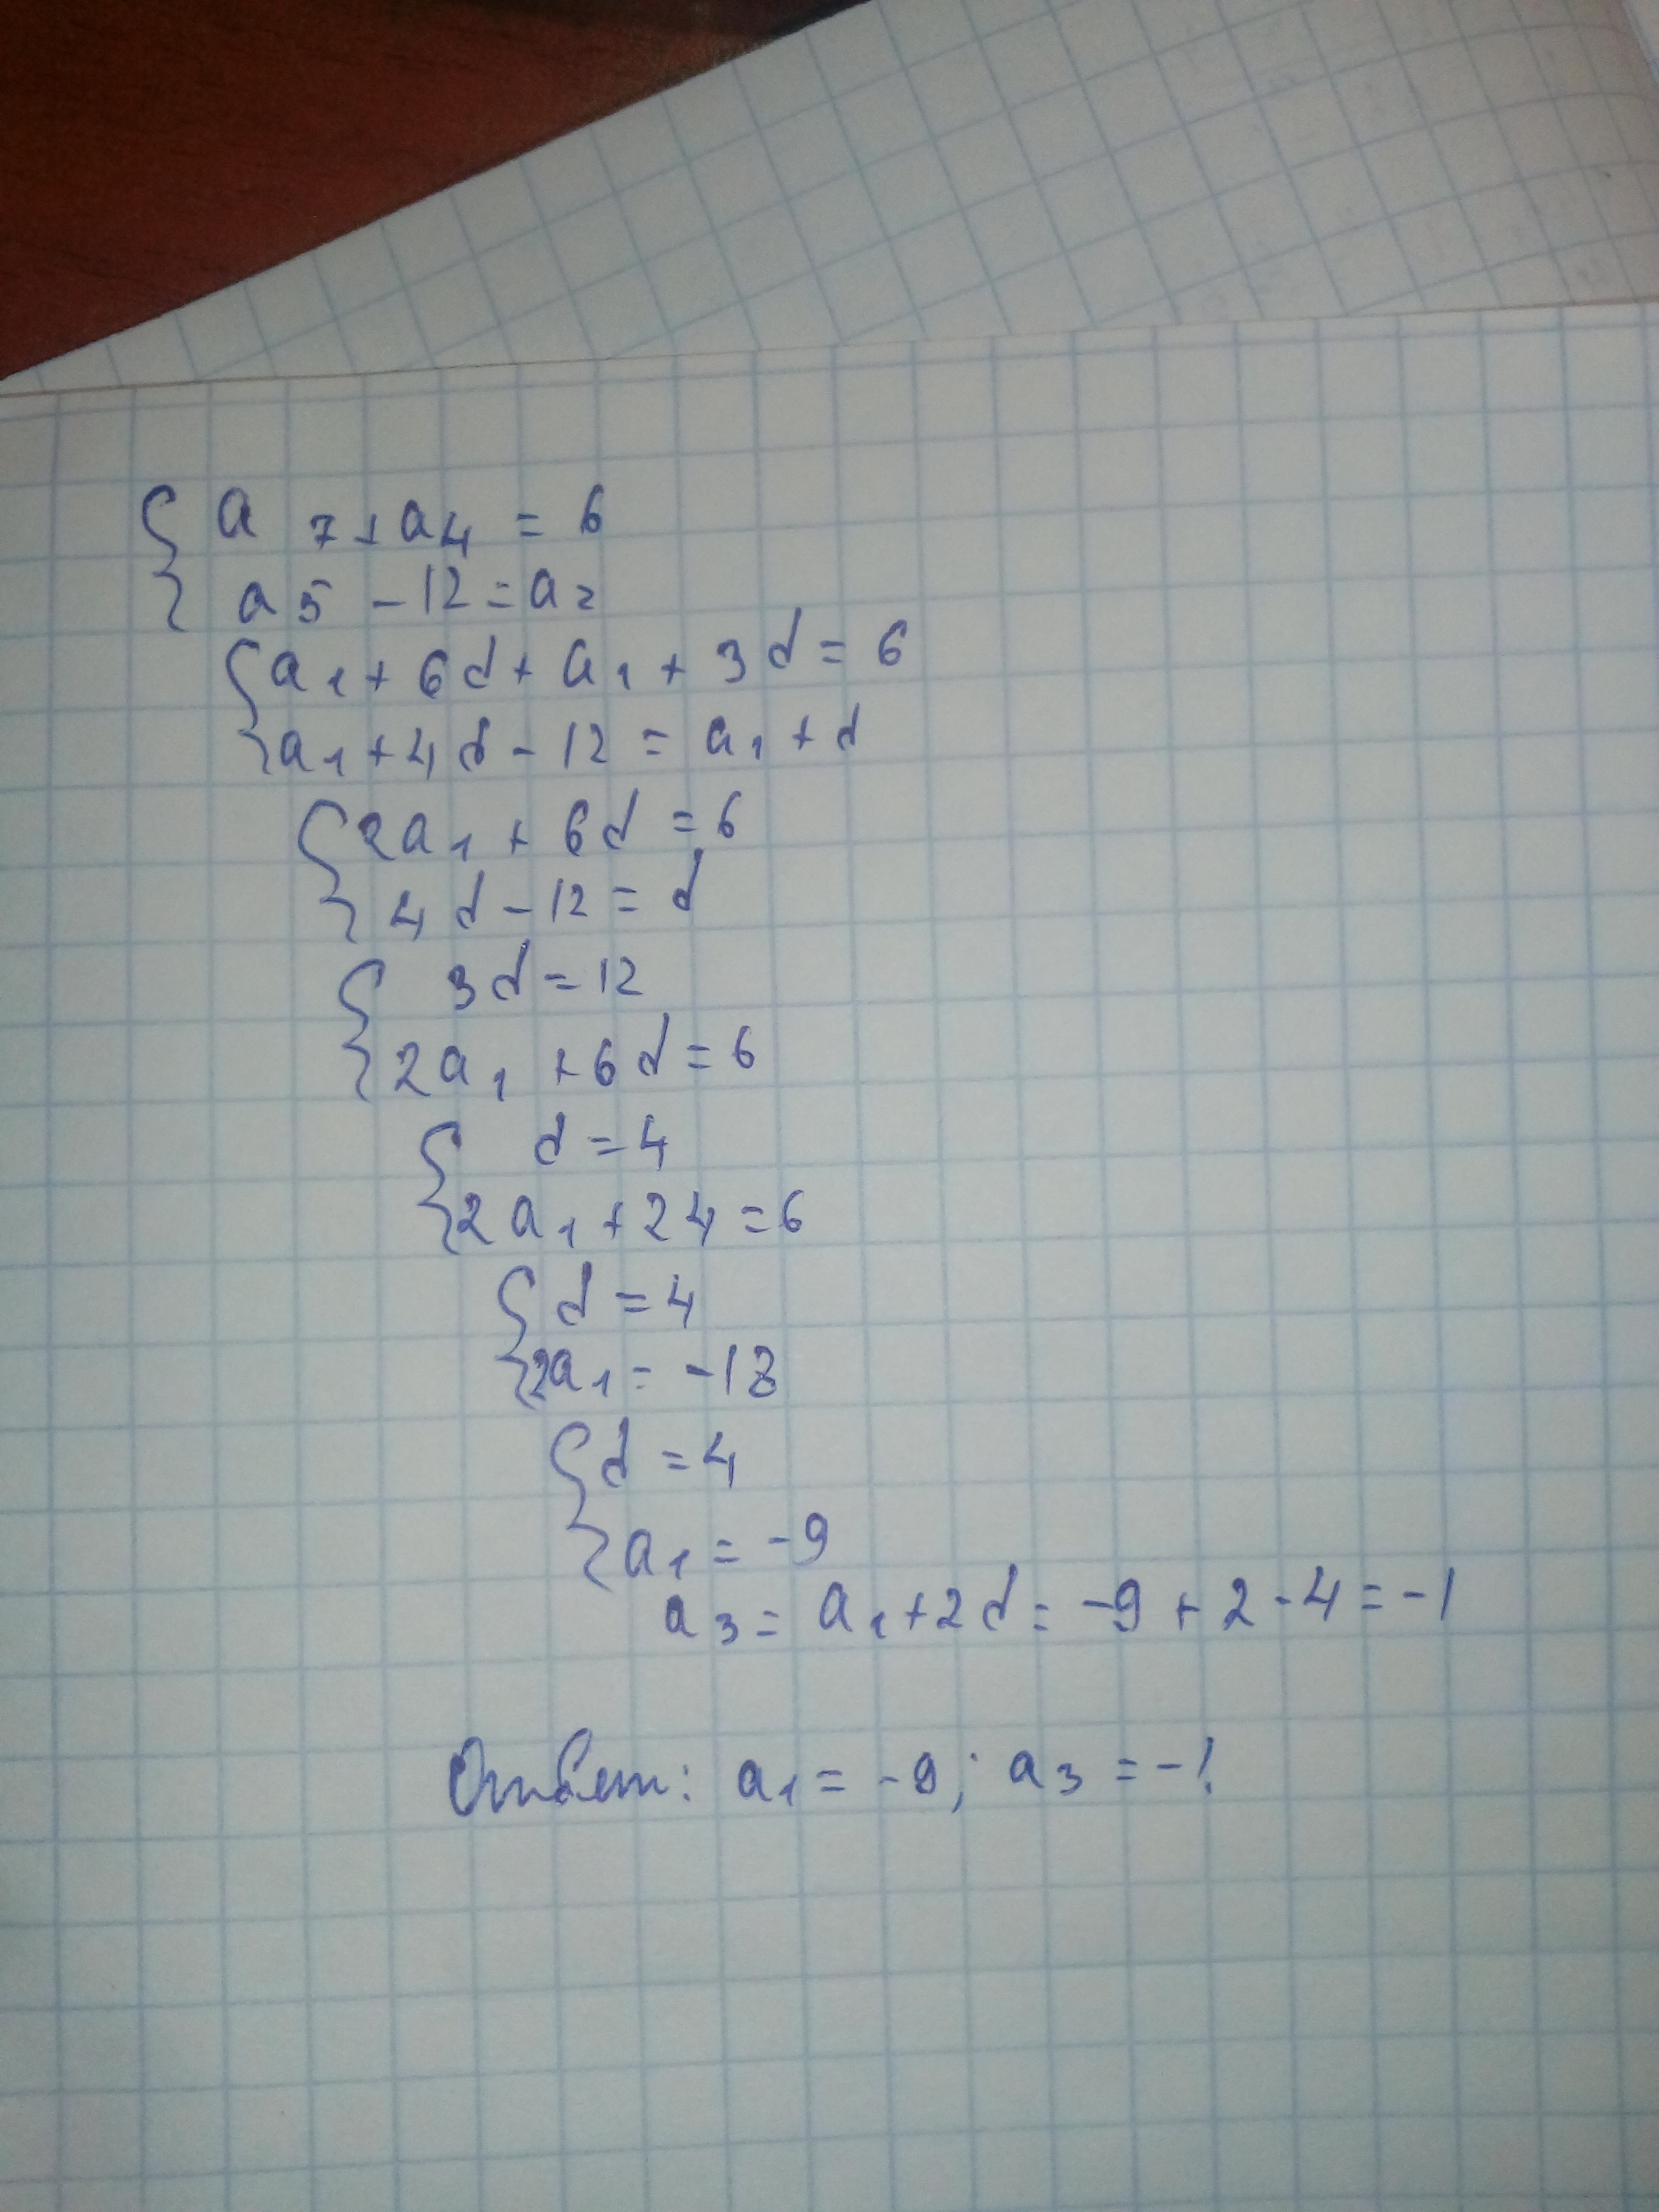 { a 7 + a4 = 6
a5 - 12 = a2
{ a1 + 6d + a1 + 3d = 6
a1 + 4d - 12 = a1 + d
{ 2a1 + 6d = 6
4d - 12 = d
{ 3d = 12
2a1 + 6d = 6
{ d = 4
2a1 + 24 = 6
{ d = 4
2a1 = -18
{ d = 4
a1 = -9
a3 = a1 + 2d = -9 + 2 · 4 = -1
Ответ: a1 = -9; a3 = -1.